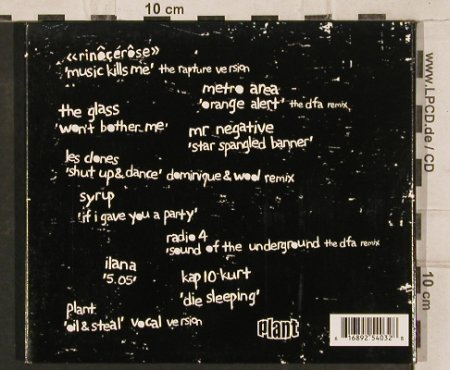 10 cm
«rinôçérôse»
'music kills me' the rapture version
metro area
'orange alert' the dfa remix
the glass
'won't bother me'
mr negative
'star spangled banner'
les clones
'shut up & dance' dominique & wool remix
syrup
'if i gave you a party'
radio 4
'sound of the underground the dfa remix
ilana
'5.05'
kap10kurt
'die sleeping'
plant
'oil & steal' vocal version
plant
16892 54032
www.LPCD.de / CD
10 cm